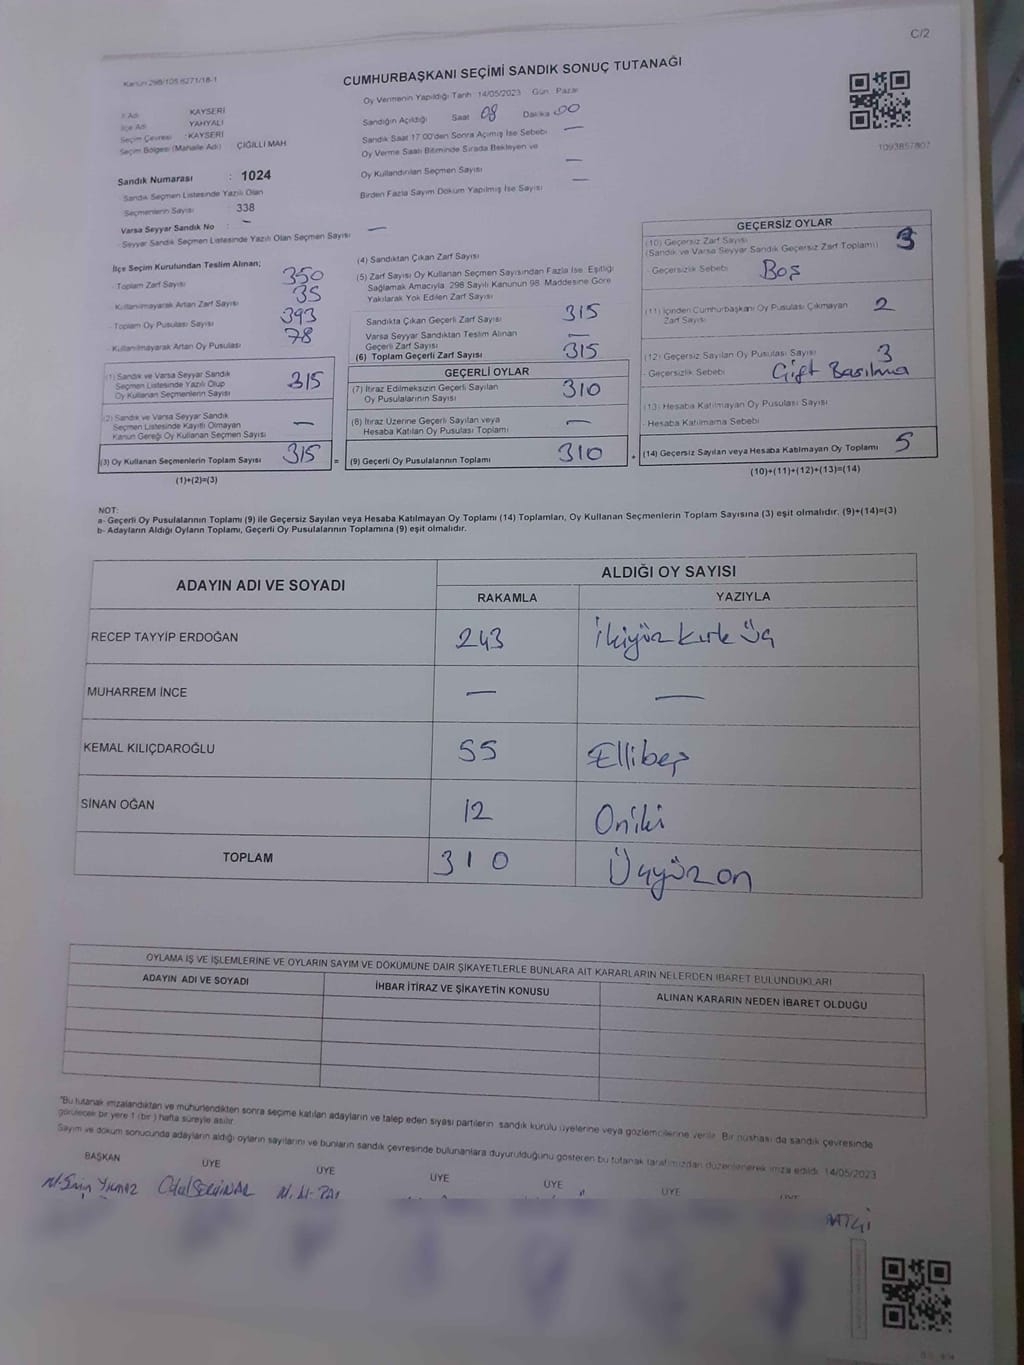 C/2
Kanun 298/105 6271/18-1
CUMHURBAŞKANI SEÇİMİ SANDIK SONUÇ TUTANAĞI
Oy Vermenin Yapıldığı Tarih :14/05/2023 Gün : Pazar
İl Adı KAYSERİ
İlçe Adı YAHYALI
Seçim Çevresi : KAYSERİ
Seçim Bölgesi (Mahalle Adı) ÇİĞİLLİ MAH
Sandığın Açıldığı Saat 08 Dakika 00
Sandık Saat 17:00'den Sonra Açılmış İse Sebebi —
Oy Verme Saati Bitiminde Sırada Bekleyen ve
Oy Kullandırılan Seçmen Sayısı —
Birden Fazla Sayım Döküm Yapılmış İse Sayısı —
1093857807
Sandık Numarası : 1024
Sandık Seçmen Listesinde Yazılı Olan
Seçmenlerin Sayısı : 338
Varsa Seyyar Sandık No : —
- Seyyar Sandık Seçmen Listesinde Yazılı Olan Seçmen Sayısı —
İlçe Seçim Kurulundan Teslim Alınan;
- Toplam Zarf Sayısı 350
- Kullanılmayarak Artan Zarf Sayısı 35
- Toplam Oy Pusulası Sayısı 393
- Kullanılmayarak Artan Oy Pusulası 78
(1) Sandık ve Varsa Seyyar Sandık
Seçmen Listesinde Yazılı Olup
Oy Kullanan Seçmenlerin Sayısı 315
(2) Sandık ve Varsa Seyyar Sandık
Seçmen Listesinde Kayıtlı Olmayan
Kanun Gereği Oy Kullanan Seçmen Sayısı —
(3) Oy Kullanan Seçmenlerin Toplam Sayısı 315 =
(1)+(2)=(3)
(4) Sandıktan Çıkan Zarf Sayısı
(5) Zarf Sayısı Oy Kullanan Seçmen Sayısından Fazla İse, Eşitliği
Sağlamak Amacıyla, 298 Sayılı Kanunun 98. Maddesine Göre
Yakılarak Yok Edilen Zarf Sayısı
Sandıkta Çıkan Geçerli Zarf Sayısı 315
Varsa Seyyar Sandıktan Teslim Alınan
Geçerli Zarf Sayısı —
(6) Toplam Geçerli Zarf Sayısı 315
GEÇERLİ OYLAR
(7) İtiraz Edilmeksizin Geçerli Sayılan
Oy Pusulalarının Sayısı 310
(8) İtiraz Üzerine Geçerli Sayılan veya
Hesaba Katılan Oy Pusulası Toplamı —
(9) Geçerli Oy Pusulalarının Toplamı 310 +
GEÇERSİZ OYLAR
(10) Geçersiz Zarf Sayısı
(Sandık ve Varsa Seyyar Sandık Geçersiz Zarf Toplamı) 3
- Geçersizlik Sebebi Boş
(11) İçinden Cumhurbaşkanı Oy Pusulası Çıkmayan
Zarf Sayısı 2
(12) Geçersiz Sayılan Oy Pusulası Sayısı 3
- Geçersizlik Sebebi Çift Basılma
(13) Hesaba Katılmayan Oy Pusulası Sayısı
- Hesaba Katılmama Sebebi
(14) Geçersiz Sayılan veya Hesaba Katılmayan Oy Toplamı 5
(10)+(11)+(12)+(13)=(14)
NOT:
a- Geçerli Oy Pusulalarının Toplamı (9) ile Geçersiz Sayılan veya Hesaba Katılmayan Oy Toplamı (14) Toplamları, Oy Kullanan Seçmenlerin Toplam Sayısına (3) eşit olmalıdır. (9)+(14)=(3)
b- Adayların Aldığı Oyların Toplamı, Geçerli Oy Pusulalarının Toplamına (9) eşit olmalıdır.
ADAYIN ADI VE SOYADI ALDIĞI OY SAYISI
RAKAMLA YAZIYLA
RECEP TAYYİP ERDOĞAN 243 İkiyüz kırk üç
MUHARREM İNCE — —
KEMAL KILIÇDAROĞLU 55 Ellibeş
SİNAN OĞAN 12 Oniki
TOPLAM 310 Üçyüz on
OYLAMA İŞ VE İŞLEMLERİNE VE OYLARIN SAYIM VE DÖKÜMÜNE DAİR ŞİKAYETLERLE BUNLARA AİT KARARLARIN NELERDEN İBARET BULUNDUKLARI
ADAYIN ADI VE SOYADI İHBAR İTİRAZ VE ŞİKAYETİN KONUSU ALINAN KARARIN NEDEN İBARET OLDUĞU
*Bu tutanak imzalandıktan ve mühürlendikten sonra seçime katılan adayların ve talep eden siyasi partilerin sandık kurulu üyelerine veya gözlemcilerine verilir. Bir nüshası da sandık çevresinde
görülecek bir yere 1 (bir) hafta süreyle asılır.
Sayım ve döküm sonucunda adayların aldığı oyların sayılarını ve bunların sandık çevresinde bulunanlara duyurulduğunu gösteren bu tutanak tarafımızdan düzenlenerek imza edildi. 14/05/2023
BAŞKAN ÜYE ÜYE ÜYE ÜYE ÜYE ÜYE